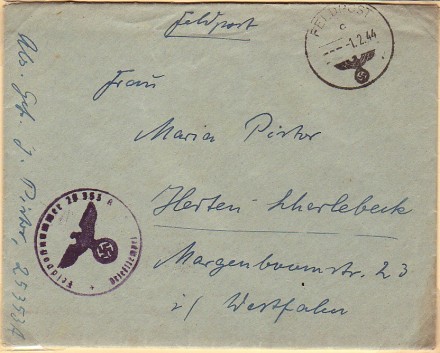 Feldpost
FELDPOST
c
--- -1.2.44
Frau
Maria Pistor
Herten Scherlebeck
Margenboomstr. 23
i/ Westfalen
Feldpostnummer
Briefstempel
Abs. Gefr. J. Pistor,